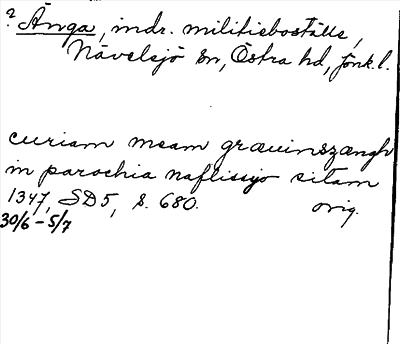 ? Änga, indr. militieboställe,
Nävelsjö sn, Östra hd, Jönk.l.
curiam meam græuinszængh
in parochia naflissyo sitam
1347, SD5, s. 680. orig.
30/6 – 5/7